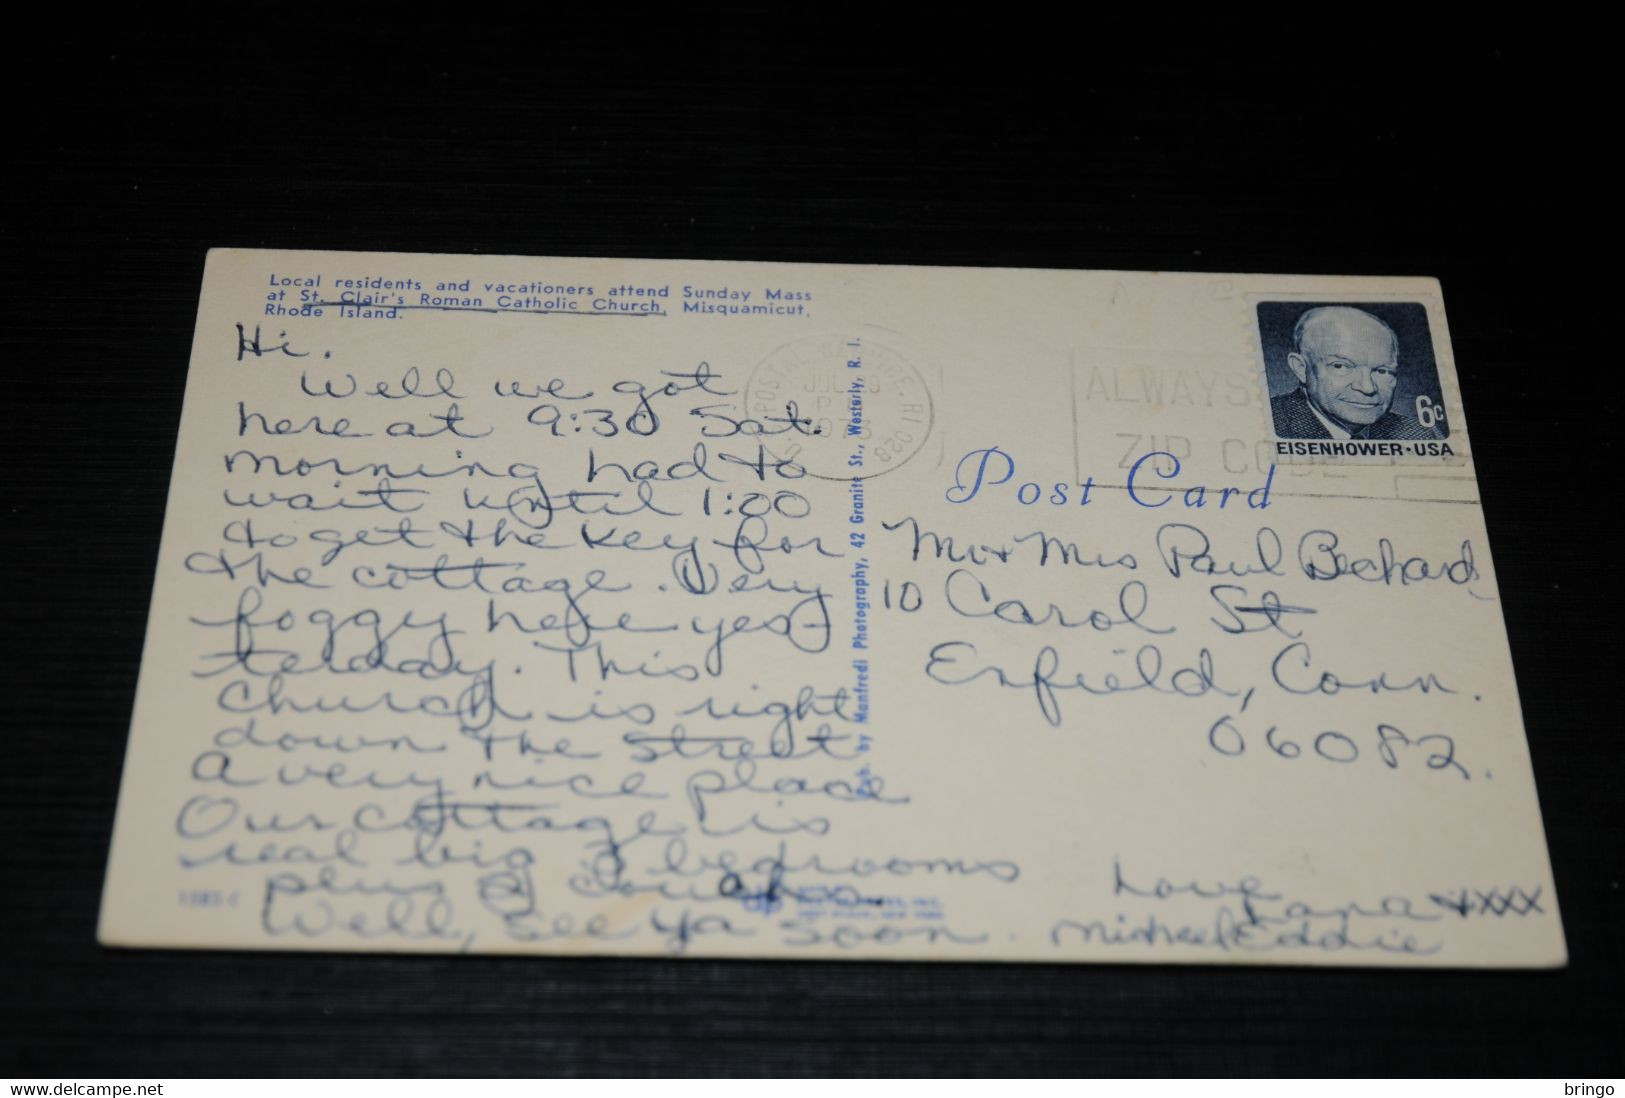 Local residents and vacationers attend Sunday Mass
at St. Clair's Roman Catholic Church, Misquamicut,
Rhode Island.
Hi.
Well we got
here at 9:30 Sat.
morning had to
wait until 1:00
to get the key for
the cottage. Very
foggy here yes-
terday. This
church is right
down the street
a very nice place
Our cottage is
real big 3 bedrooms
plus a couch
Well, see ya soon.
1083-C
Pub. by Manfredi Photography, 42 Granite St., Westerly, R. I.
POSTAL SERVICE, RI 028
JUL
PM
1973
ALWAYS
ZIP CODE
6c
EISENHOWER · USA
Post Card
Mr + Mrs Paul Bechard
10 Carol St
Enfield, Conn.
06082.
Love
Lana xxxx
Michael Eddie
delcampe.net
bringo